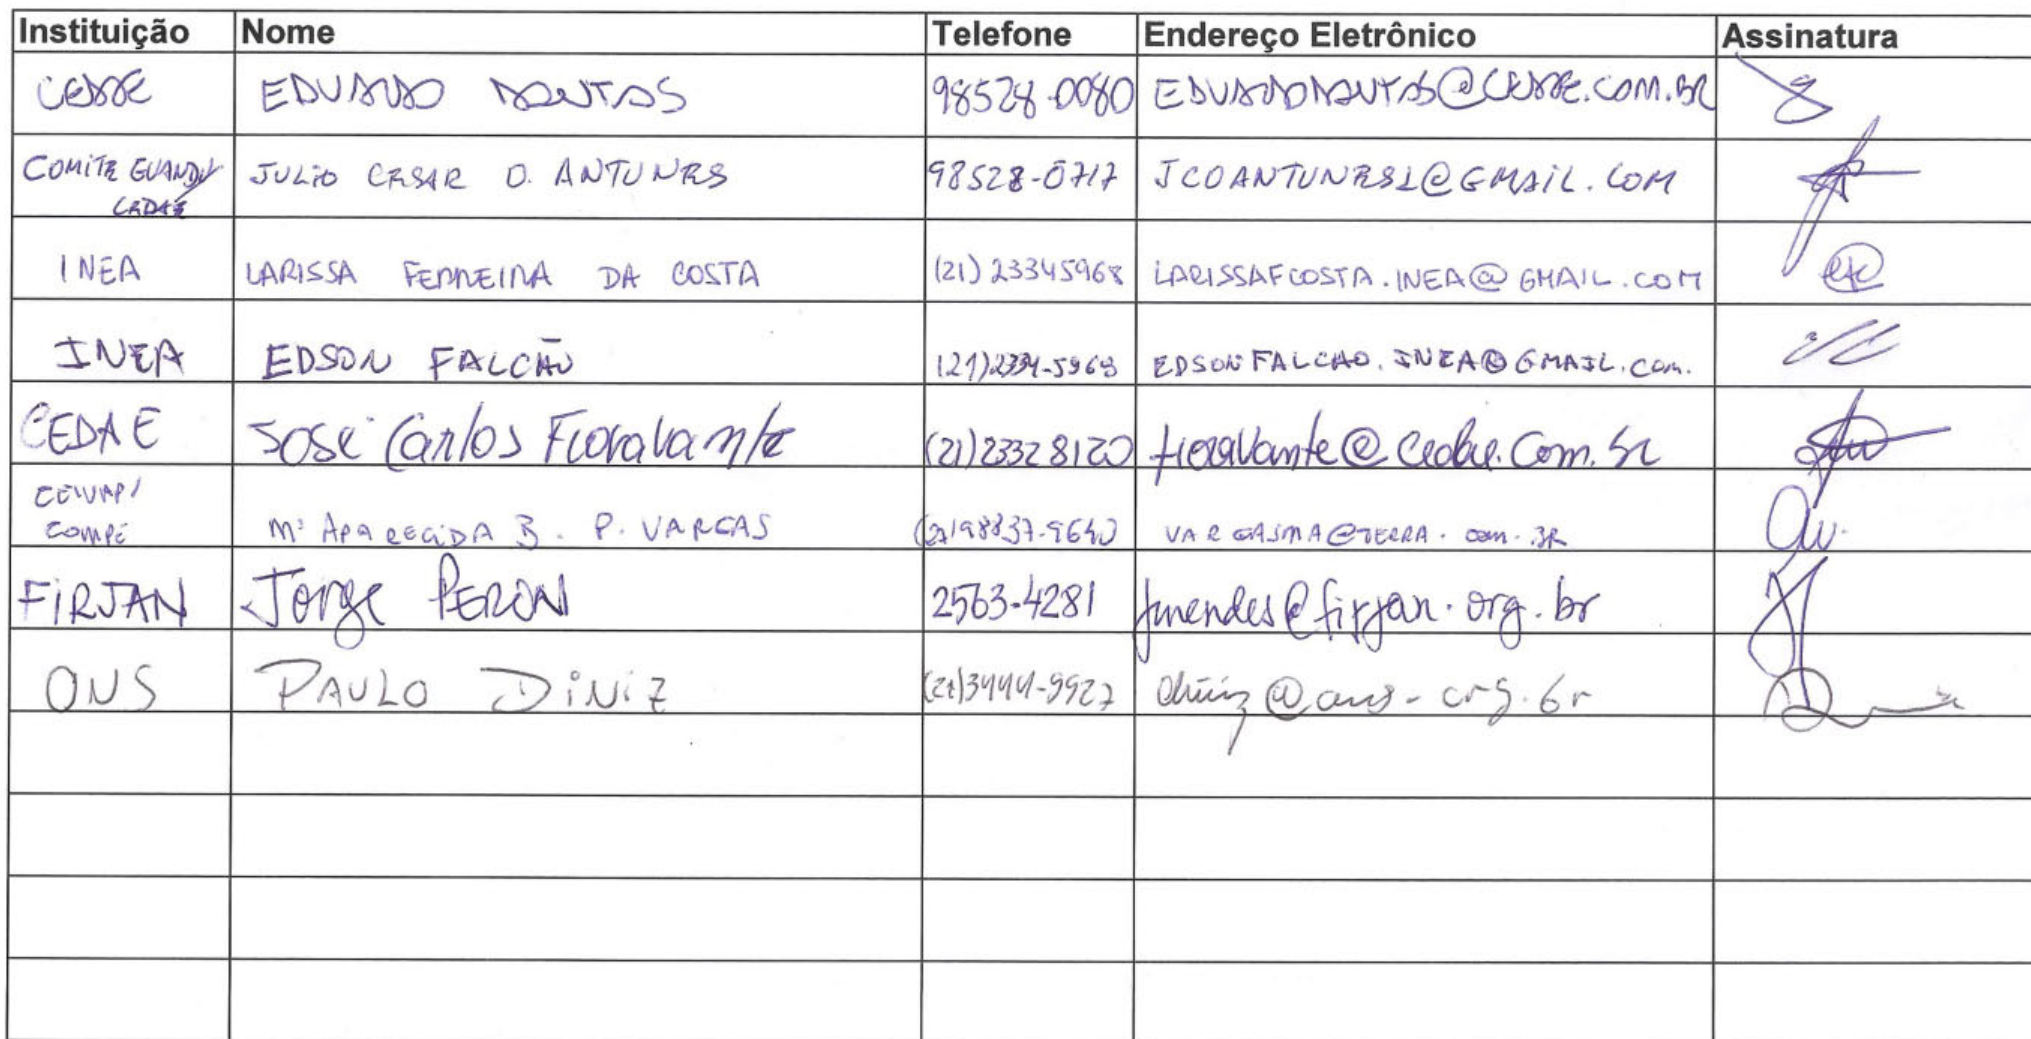 Instituição Nome Telefone Endereço Eletrônico Assinatura
CEDAE EDUARDO DANTAS 98528-0080 EDUARDODANTAS@CEDAE.COM.BR
COMITE GUANDU/ JULIO CESAR O. ANTUNES 98528-0717 JCOANTUNES1@GMAIL.COM
CEDAE
INEA LARISSA FERREIRA DA COSTA (21) 23345968 LARISSAFCOSTA.INEA@GMAIL.COM
INEA EDSON FALCÃO (21)2334-5968 EDSONFALCAO.INEA@GMAIL.COM.
CEDAE José Carlos Fioravante (21)23328120 fioravante@cedae.com.br
CEIVAP/
COMPÉ Mª APARECIDA B. P. VARGAS VARGASMA@TERRA.COM.BR
FIRJAN Jorge PERON 2563-4281 jmendes@firjan.org.br
ONS PAULO DINIZ (21)3444-9927 diniz@ons.org.br